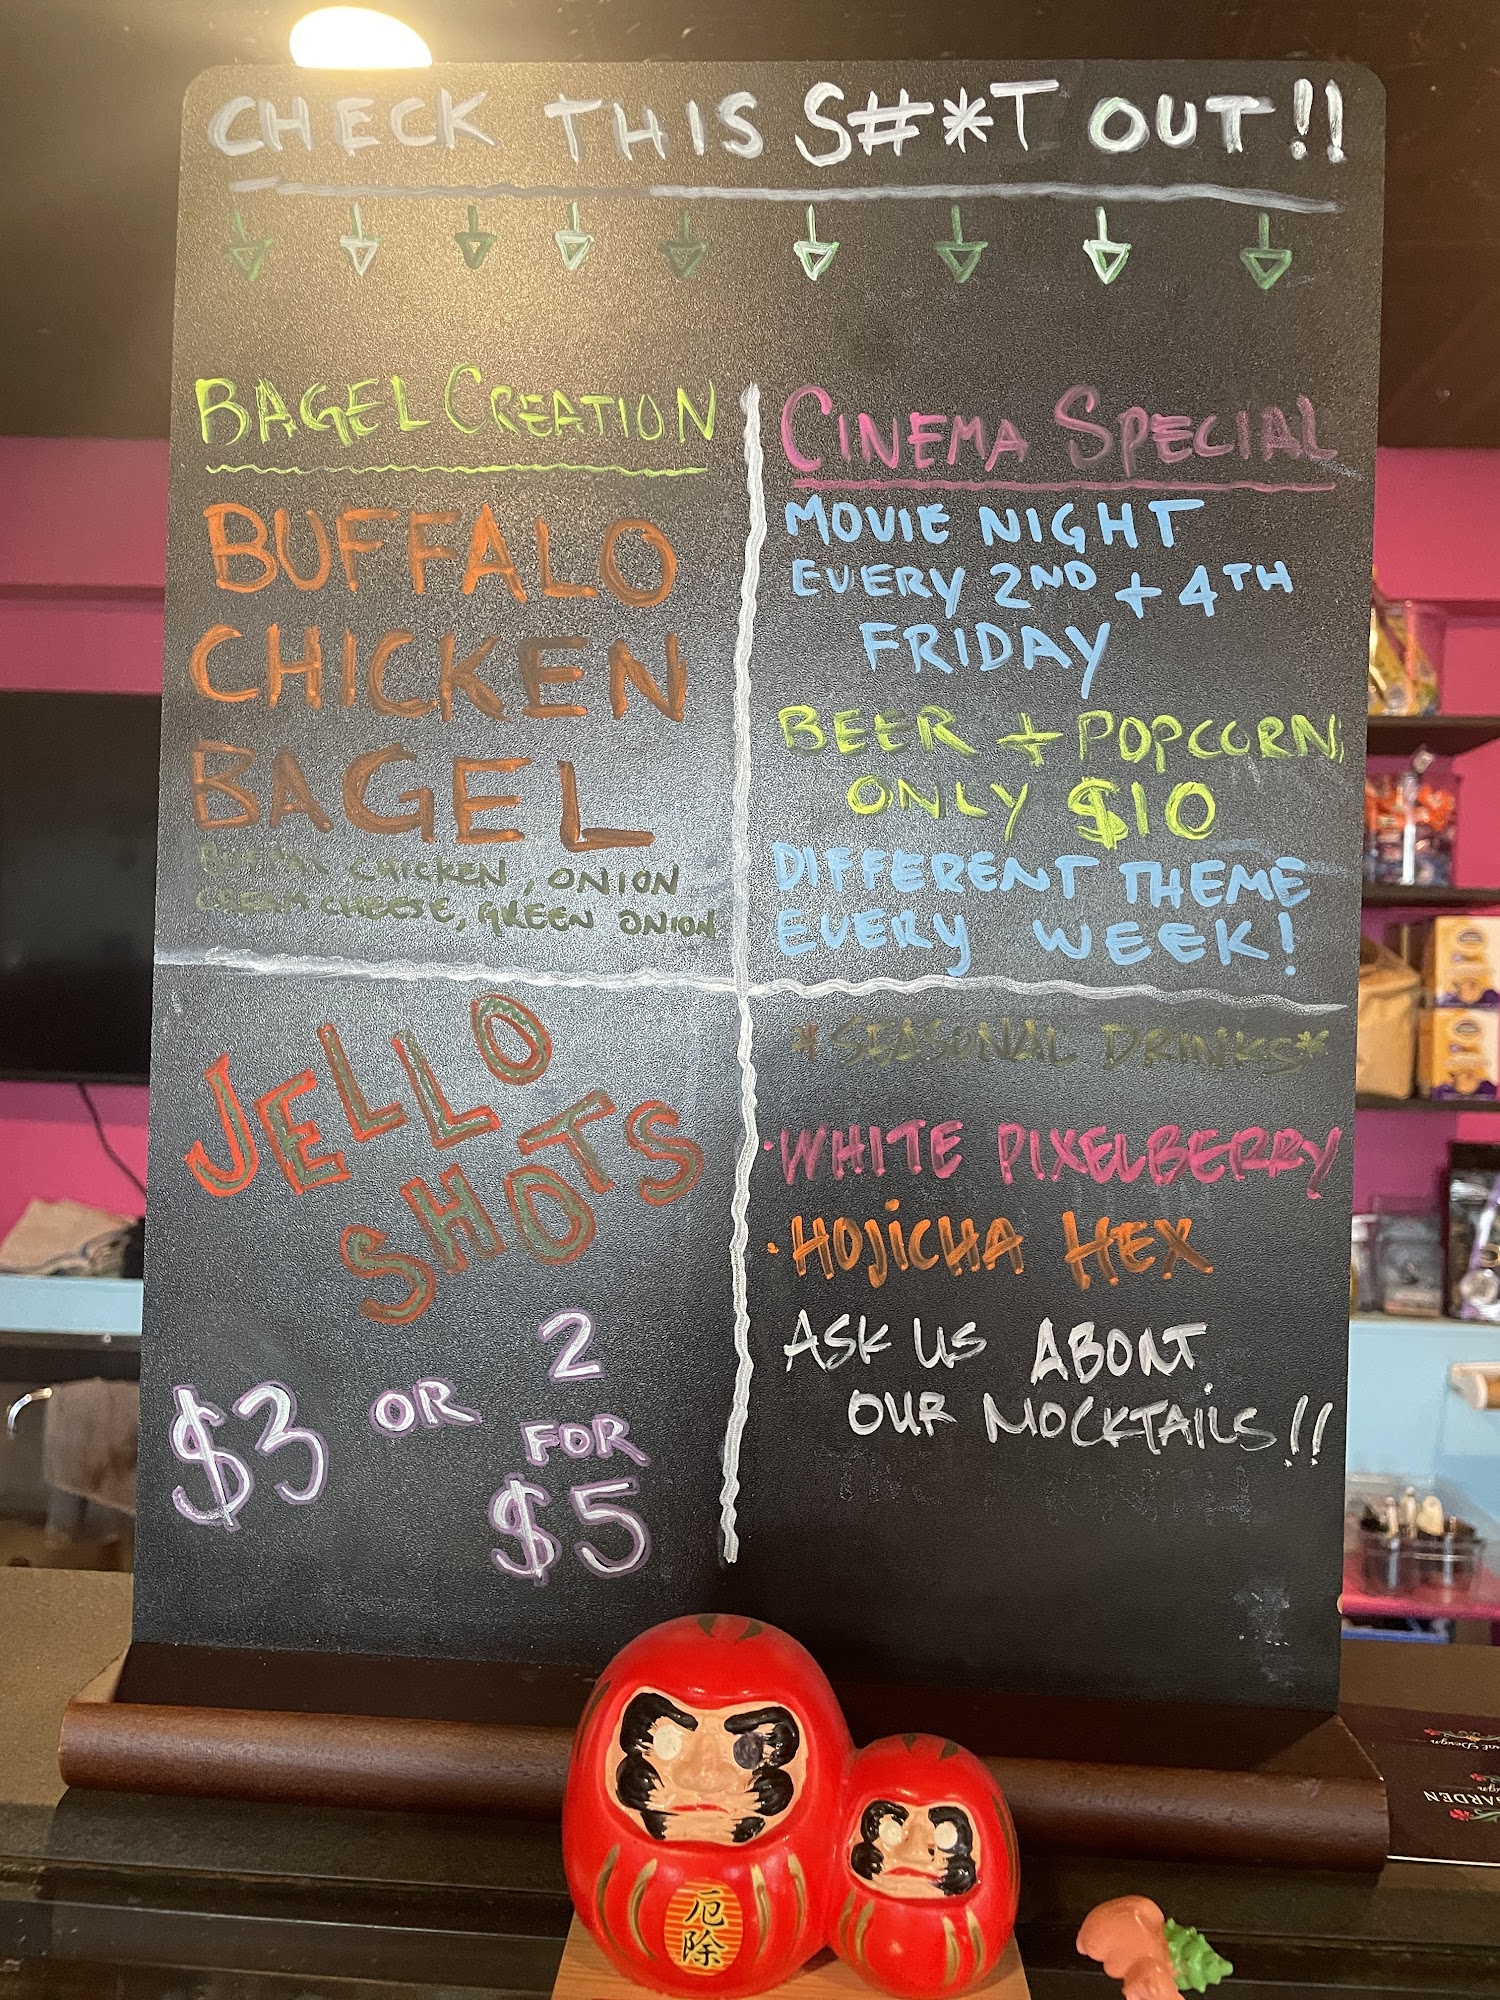 CHECK THIS S#*T OUT!!
BAGEL CREATION
BUFFALO
CHICKEN
BAGEL
BUFFALO CHICKEN, ONION
CREAM CHEESE, GREEN ONION
CINEMA SPECIAL
MOVIE NIGHT
EVERY 2ND + 4TH
FRIDAY
BEER + POPCORN,
ONLY $10
DIFFERENT THEME
EVERY WEEK!
JELLO
SHOTS
$3 OR 2
FOR
$5
*SEASONAL DRINKS*
·WHITE PIXELBERRY
·HOJICHA HEX
ASK US ABOUT
OUR MOCKTAILS!!
厄除
GARDEN